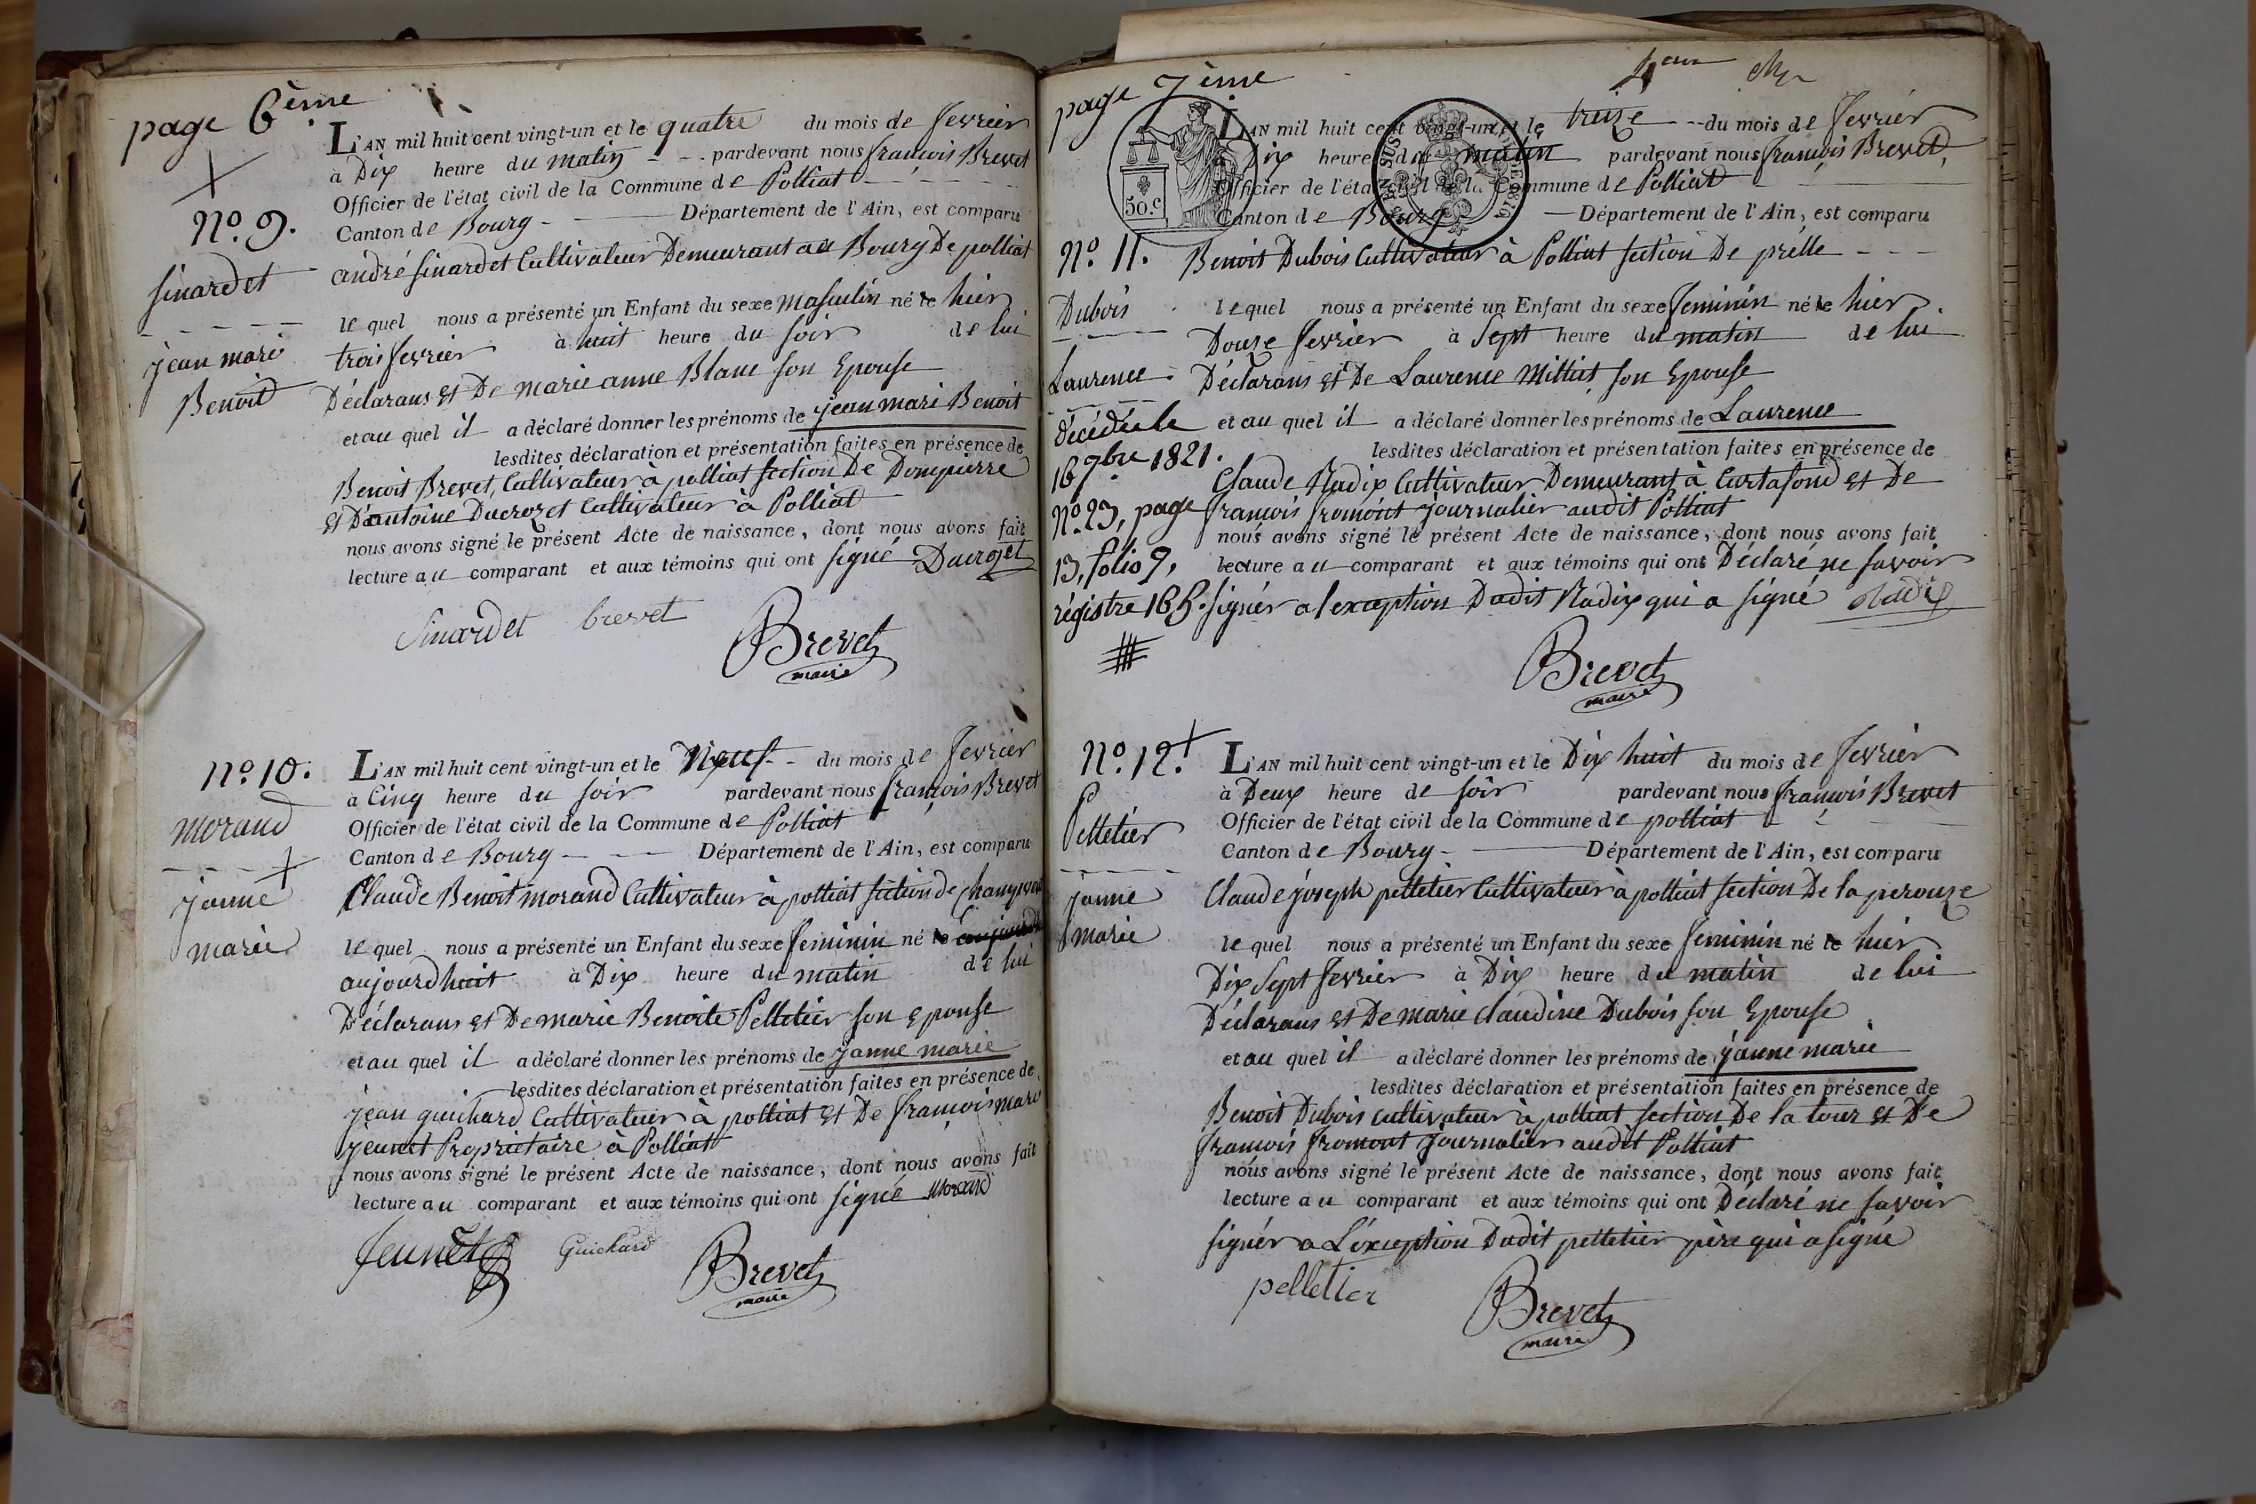 page 6ème
L'AN mil huit cent vingt-un et le quatre du mois de fevrier
à Dix heure du matin pardevant nous françois Brevet
Officier de l'état civil de la Commune de Polliat
Canton de Bourg Département de l'Ain, est comparu
N.º 9.
Sinardet
jean mari
Benoit
andré Sinardet Cultivateur Demeurant au Bourg De polliat
lequel nous a présenté un Enfant du sexe masculin né le hier
trois fevrier à huit heure du soir de lui
Déclarans et De marie anne Blanc son Epouse
et au quel il a déclaré donner les prénoms de jean mari Benoit
lesdites déclaration et présentation faites en présence de
Benoit Brevet, Cultivateur à polliat section De Dompierre
et D'antoine Ducrozet Cultivateur à Polliat
nous avons signé le présent Acte de naissance, dont nous avons fait
lecture au comparant et aux témoins qui ont signé Ducrozet
Sinardet brevet
Brevet
maire
N.º 10.
morand
janne
marie
L'AN mil huit cent vingt-un et le Neuf du mois de fevrier
à Cinq heure du soir pardevant nous françois Brevet
Officier de l'état civil de la Commune de Polliat
Canton de Bourg Département de l'Ain, est comparu
Claude Benoit morand Cultivateur à polliat section de
lequel nous a présenté un Enfant du sexe feminin né le
aujourdhuit à Dix heure du matin de lui
Déclarans et De marie Benoite Pelletier son epouse
et au quel il a déclaré donner les prénoms de janne marie
lesdites déclaration et présentation faites en présence de
jean guichard Cultivateur à polliat et De françois mari
jeunet Proprietaire à Polliat
nous avons signé le présent Acte de naissance, dont nous avons fait
lecture au comparant et aux témoins qui ont signé Morand
Jeunet Guichard
Brevet
maire
page 7ème
4eme
50.c
L'AN mil huit cent vingt-un et le treize du mois de fevrier
à Dix heure du matin pardevant nous françois Brevet,
Officier de l'état civil de la Commune de Polliat
Canton de Bourg Département de l'Ain, est comparu
N.º 11.
Dubois
Laurence
décédée le
16 7bre 1821.
Nº 23, page
13, folio 7,
régistre 165.
Benoit Dubois Cultivateur à Polliat section De prélle
lequel nous a présenté un Enfant du sexe feminin né le hier
Douze fevrier à Sept heure du matin de lui
Déclarans et De Laurence Milliat son Epouse
et au quel il a déclaré donner les prénoms de Laurence
lesdites déclaration et présentation faites en présence de
Claude Nadix Cultivateur Demeurant à Curtafond et De
françois fromont journalier audit Polliat
nous avons signé le présent Acte de naissance, dont nous avons fait
lecture au comparant et aux témoins qui ont Déclaré ne savoir
signér a l'exception Dudit Nadix qui a signé Nadix
Brevet
maire
N.º 12.
Pelletier
janne
marie
L'AN mil huit cent vingt-un et le Dix huit du mois de fevrier
à Deux heure de soir pardevant nous françois Brevet
Officier de l'état civil de la Commune de polliat
Canton de Bourg Département de l'Ain, est comparu
Claude joseph pelletier Cultivateur à polliat section De la perouze
lequel nous a présenté un Enfant du sexe feminin né le hier
Dix Sept fevrier à Dix heure du matin de lui
Déclarans et De marie claudine Dubois son Epouse
et au quel il a déclaré donner les prénoms de janne marie
lesdites déclaration et présentation faites en présence de
Benoit Dubois cultivateur à polliat section De la tour et De
françois fromont journalier audit Polliat
nous avons signé le présent Acte de naissance, dont nous avons fait
lecture au comparant et aux témoins qui ont Déclaré ne savoir
signér a L'éxception Dudit pelletier père qui a signé
pelletier
Brevet
maire